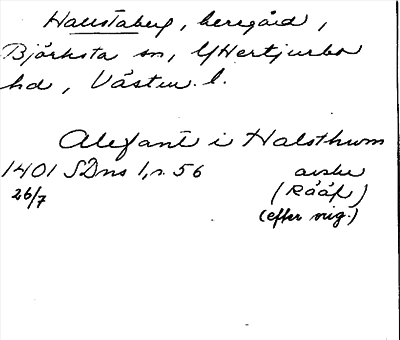 Hallstaberg, herrgård,
Björksta sn, Yttertjurbo
hd, Västm. l.
Alexant i Halsthwm
1401 SDns 1, s. 56 avskr
26/7 (RääF)
(efter orig.)